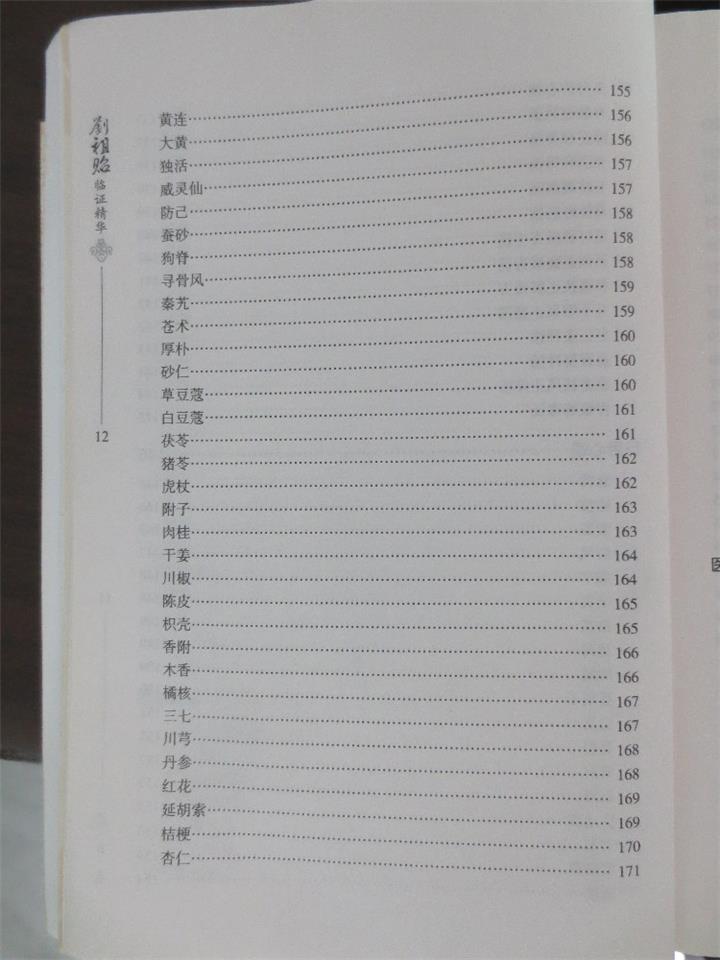 劉祖贻临证精华
12
黄连……155
大黄……156
独活……156
威灵仙……157
防己……157
蚕砂……158
狗脊……158
寻骨风……158
秦艽……159
苍术……159
厚朴……160
砂仁……160
草豆蔻……160
白豆蔻……161
茯苓……161
猪苓……162
虎杖……162
附子……163
肉桂……163
干姜……164
川椒……164
陈皮……165
枳壳……165
香附……166
木香……166
橘核……167
三七……167
川芎……168
丹参……168
红花……169
延胡索……169
桔梗……170
杏仁……171